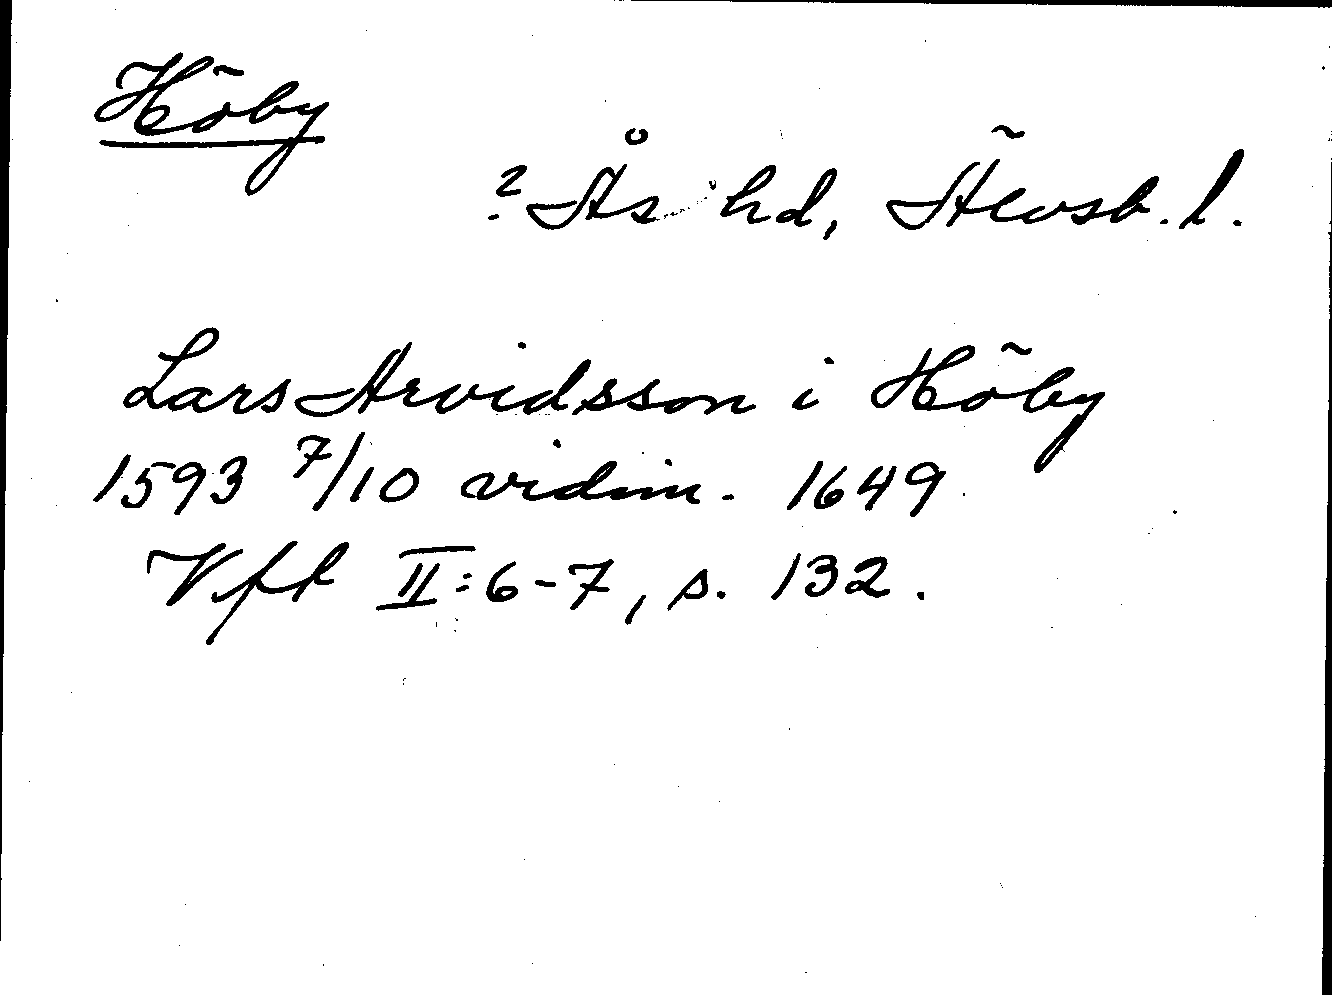 Höby
? Ås hd, Älvsb. l.
Lars Arvidsson i Höby
1593 7/10 vidim. 1649
Vft II:6-7, s. 132.